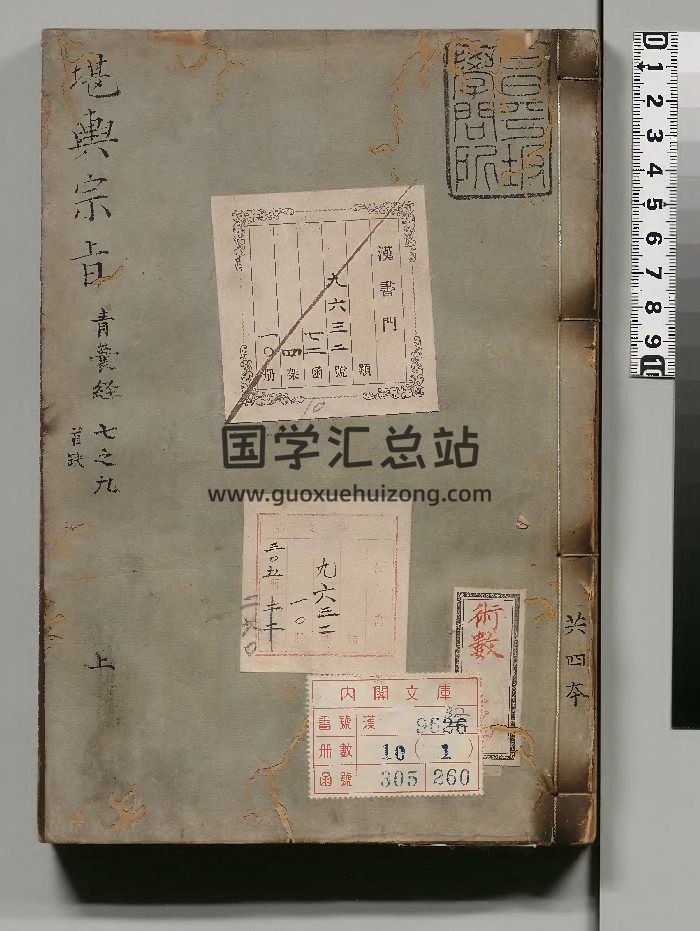 堪輿宗旨
青囊經 七之九
首缺
上
昌平坂
學問所
漢書門
九六三二
七二
四
一〇
類
號
函
架
册
10
国学汇总站
www.guoxuehuizong.com
九六三二
一〇
三〇五
二六〇
術數
共四本
內閣文庫
番號 漢 9626
32
册數 10 (1)
函號 305 260
0 1 2 3 4 5 6 7 8 9 10